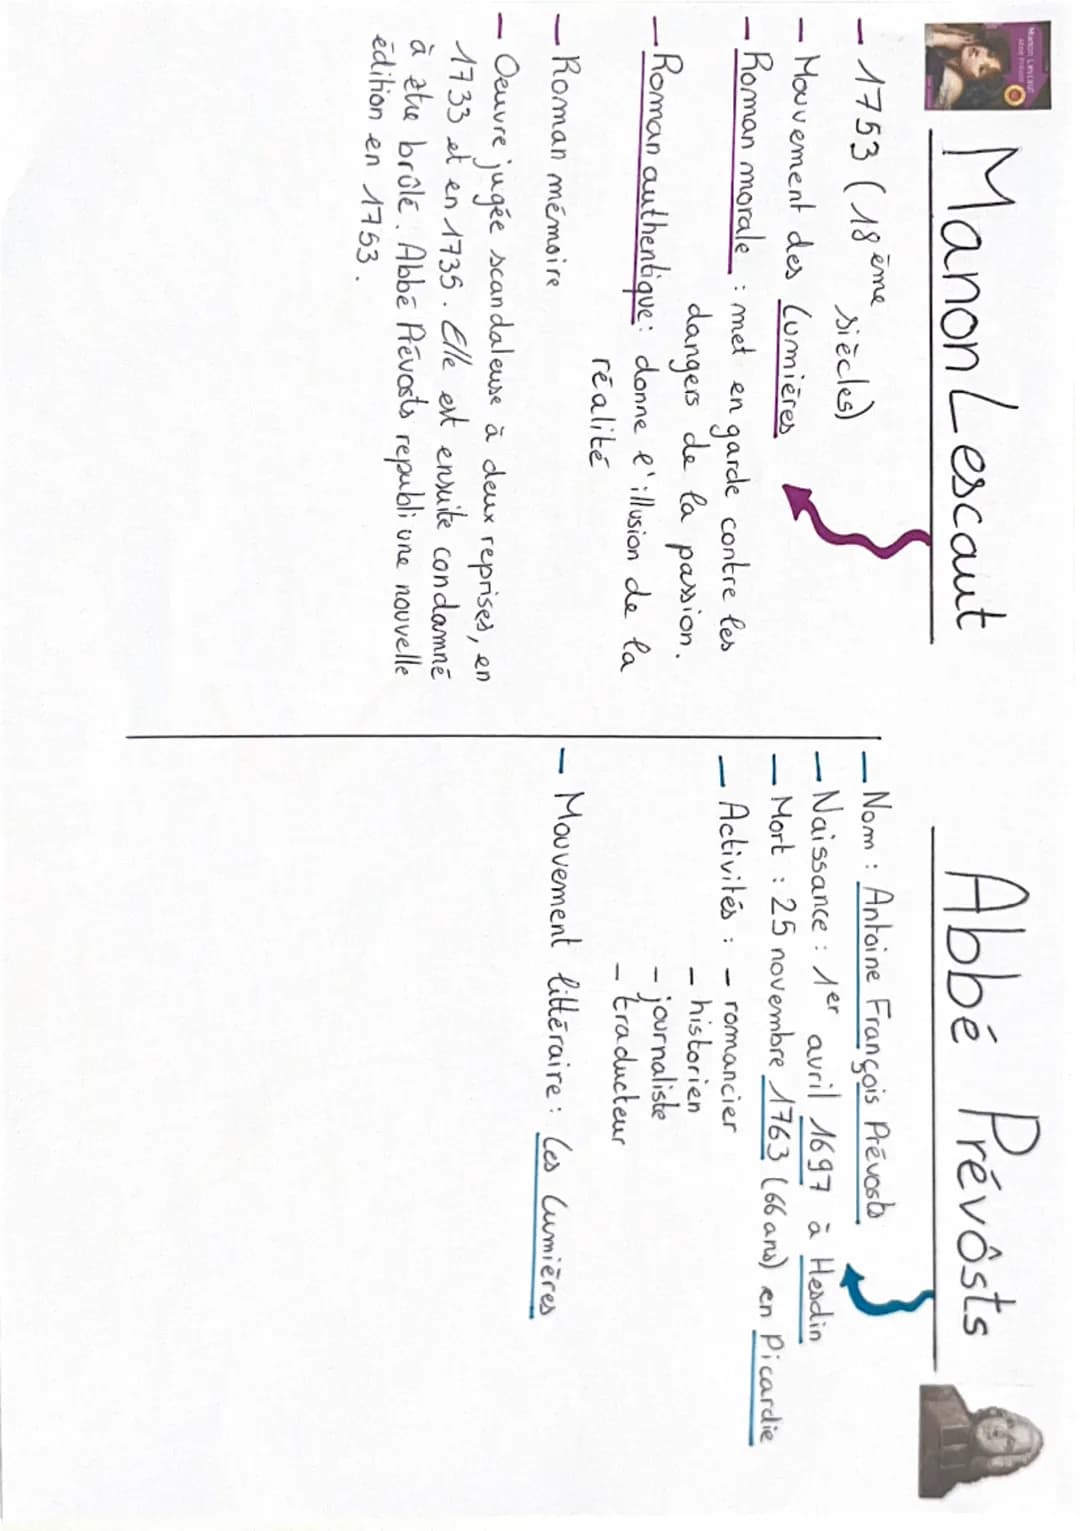 Manon Lescaut
— 1753 (18ème siècles)
— Mouvement des Lumières
— Roman morale : met en garde contre les
dangers de la passion.
— Roman authentique : donne l'illusion de la
réalité
— Roman mémoire
— Oeuvre jugée scandaleuse à deux reprises, en
1733 et en 1735. Elle est ensuite condamné
à être brûlé. Abbé Prévosts republi une nouvelle
édition en 1753.
Abbé Prévôsts
— Nom : Antoine François Prévosts
— Naissance : 1er avril 1697 à Hesdin
— Mort : 25 novembre 1763 (66 ans) en Picardie
— Activités : - romancier
- historien
- journaliste
- traducteur
— Mouvement littéraire : Les Lumières